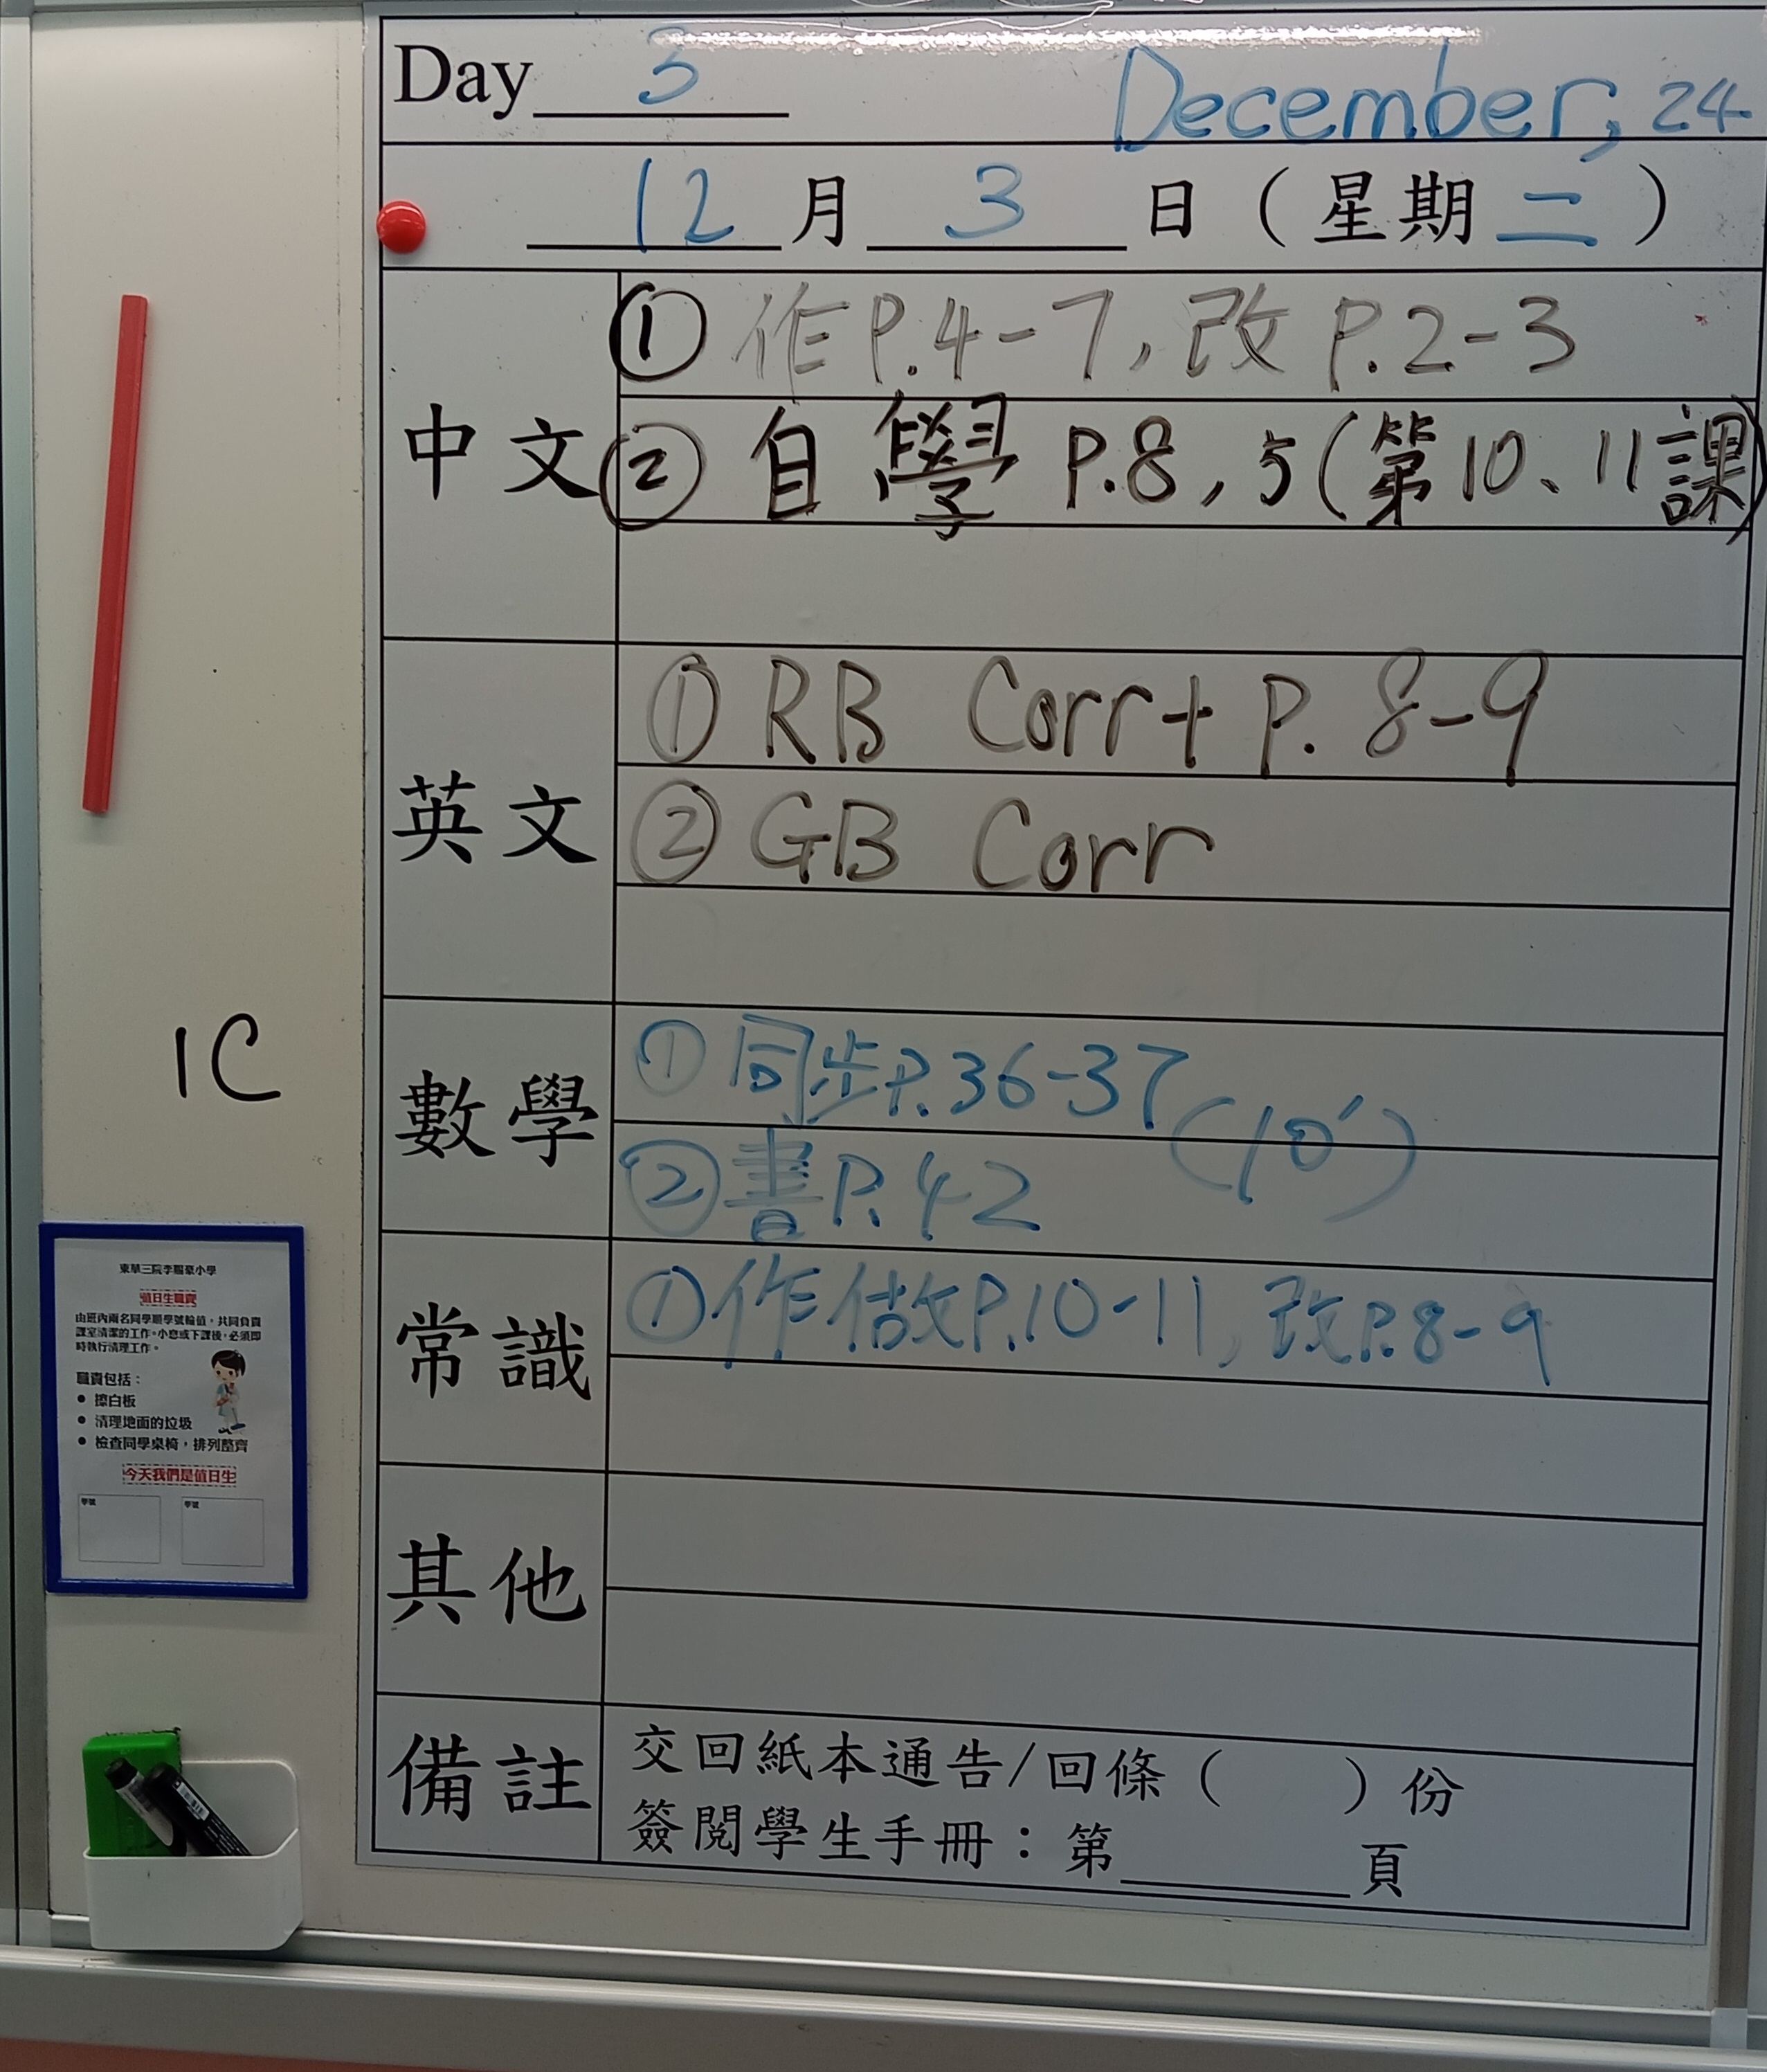 Day 3 December, 24
12 月 3 日 ( 星期 二 )
中文
① 作P.4-7, 改 P.2-3
② 自學 P.8, 5 (第10、11課)
英文
① RB Corr + P. 8-9
② GB Corr
數學
① 同步P.36-37
(10')
② 書P.42
常識
① 作 做P.10-11, 改P.8-9
其他
備註
交回紙本通告/回條 ( ) 份
簽閱學生手冊：第____頁
1C
值日生職責
由班內兩名同學順學號輪值，共同負責
課室清潔的工作。小息或下課後，必須即
時執行清理工作。
職責包括：
● 擦白板
● 清理地面的垃圾
● 檢查同學桌椅，排列整齊
今天我們是值日生
學號 學號